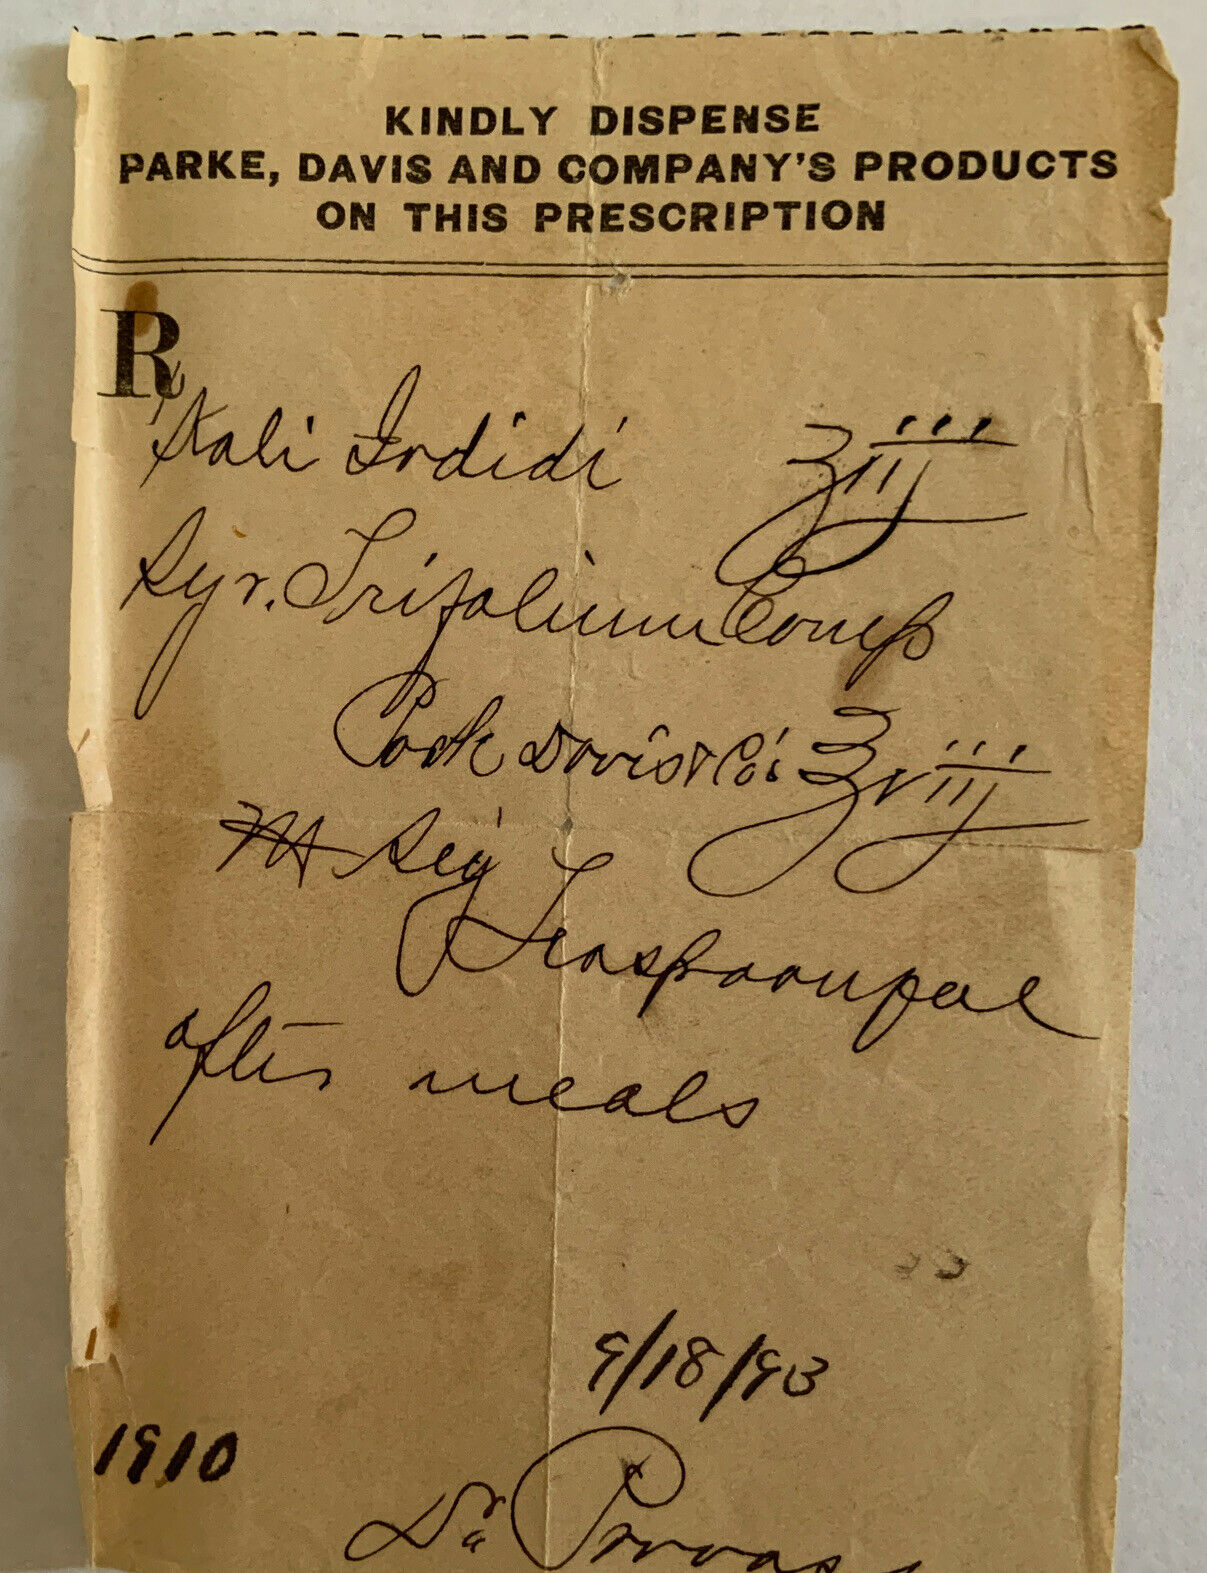 KINDLY DISPENSE
PARKE, DAVIS AND COMPANY'S PRODUCTS
ON THIS PRESCRIPTION
R
Kali Iodidi ʒiij
Syr. Trifolium Comp
Davis & Co's ℥viij
M Sig Teaspoonful
after meals
9/18/93
1910
Dr